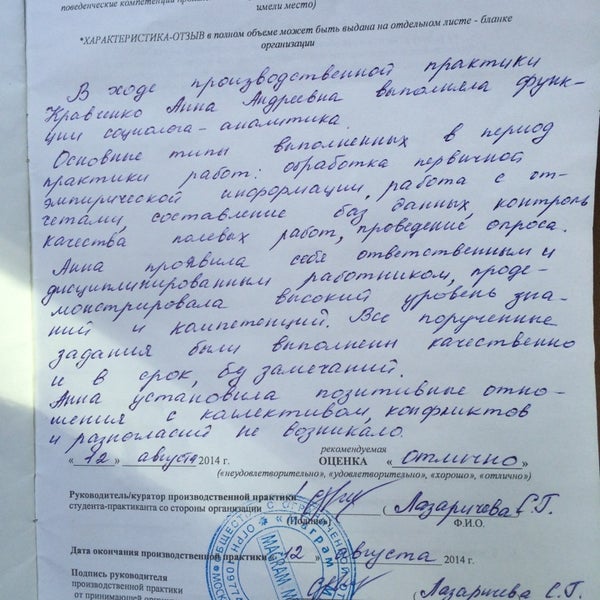 поведенческие компетенции
имели место)
*ХАРАКТЕРИСТИКА-ОТЗЫВ в полном объеме может быть выдана на отдельном листе - бланке
организации
В ходе производственной практики
Кравченко Анна Андреевна выполняла функ-
ции социолога-аналитика.
Основные типы выполненных в период
практики работ: обработка первичной
эмпирической информации, работа с от-
четами, составление баз данных, контроль
качества полевых работ, проведение опроса.
Анна проявила себя ответственным и
дисциплинированным работником, проде-
монстрировала высокий уровень зна-
ний и компетенций. Все порученные
задания были выполнены качественно
и в срок, без замечаний.
Анна установила позитивные отно-
шения с коллективом, конфликтов
и разногласий не возникало.
рекомендуемая
« 12 » августа 2014 г. ОЦЕНКА « отлично »
(«неудовлетворительно», «удовлетворительно», «хорошо», «отлично»)
Руководитель/куратор производственной практики
студента-практиканта со стороны организации ( Лазаричева С.Г.
(Подпись) Ф.И.О.
Дата окончания производственной практики « 12 » августа 2014 г.
Подпись руководителя
производственной практики ( Лазаричева С.Г.
от принимающей